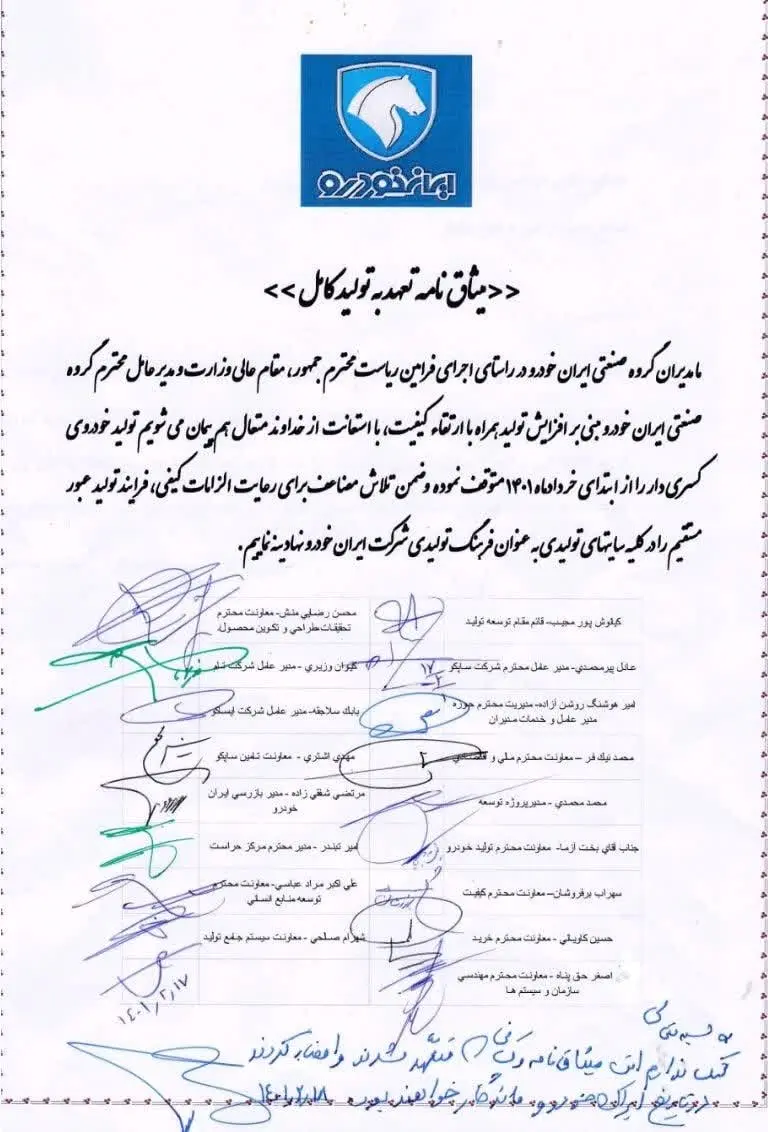 ایران خودرو
<<میثاق نامه تعهد به تولید کامل>>
ما مدیران گروه صنعتی ایران خودرو در راستای اجرای فرامین ریاست محترم جمهور، مقام عالی وزارت و مدیر عامل محترم گروه
صنعتی ایران خودرو مبنی بر افزایش تولید همراه با ارتقاء کیفیت، با استعانت از خداوند متعال هم پیمان می شویم تولید خودروی
کسری دار را از ابتدای خرداد ماه ۱۴۰۱ متوقف نموده و ضمن تلاش مضاعف برای رعایت الزامات کیفی، فرایند تولید عبور
مستقیم را در کلیه سایتهای تولیدی به عنوان فرهنگ تولیدی شرکت ایران خودرو نهادینه نماییم.
کیانوش پور مجیب- قائم مقام توسعه تولید
محسن رضایی منش- معاونت محترم
تحقیقات طراحی و تکوین محصول،
عادل پیرمحمدی- مدیر عامل محترم شرکت ساپکو
۱۷/۲
کیوان وزیری - مدیر عامل شرکت تام
امیر هوشنگ روشن آزاده- مدیریت محترم حوزه
مدیر عامل و خدمات مدیران
بابک سلاجقه- مدیر عامل شرکت ایسکو
محمد نیک فر – معاونت محترم مالی و اقتصادی
مهدی اشتری - معاونت تامین ساپکو
محمد محمدی - مدیرپروژه توسعه
مرتضی شفقی زاده - مدیر بازرسی ایران
خودرو
جناب آقای بخت آزما- معاونت محترم تولید خودرو
امیر تبندر - مدیر محترم مرکز حراست
سهراب برفروشان– معاونت محترم کیفیت
علی اکبر مراد عباسی- معاونت محترم
توسعه منابع انسانی
حسین کاویانی - معاونت محترم خرید
شهرام صالحی - معاونت سیستم جامع تولید
اصغر حق پناه - معاونت محترم مهندسی
سازمان و سیستم ها
۱۴۰۱/۲/۱۷
شک ندارم این میثاق نامه متعهد شدند و امضاء کردند
در تاریخ ایران خودرو ماندگار خواهند بود. ۱۴۰۱.۲.۱۸